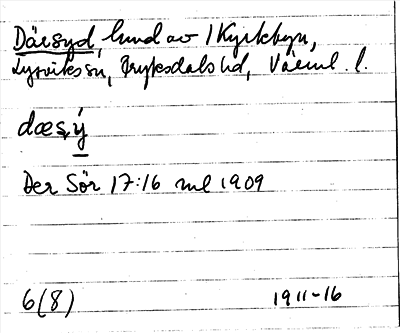 Däesyd, hmd av 1 Kyrkbyn,
Lysviks sn, Fryksdals hd, Värml. l.
dæs,ý
Der Sör 17:16 ml 1909
6(8) 1911-16